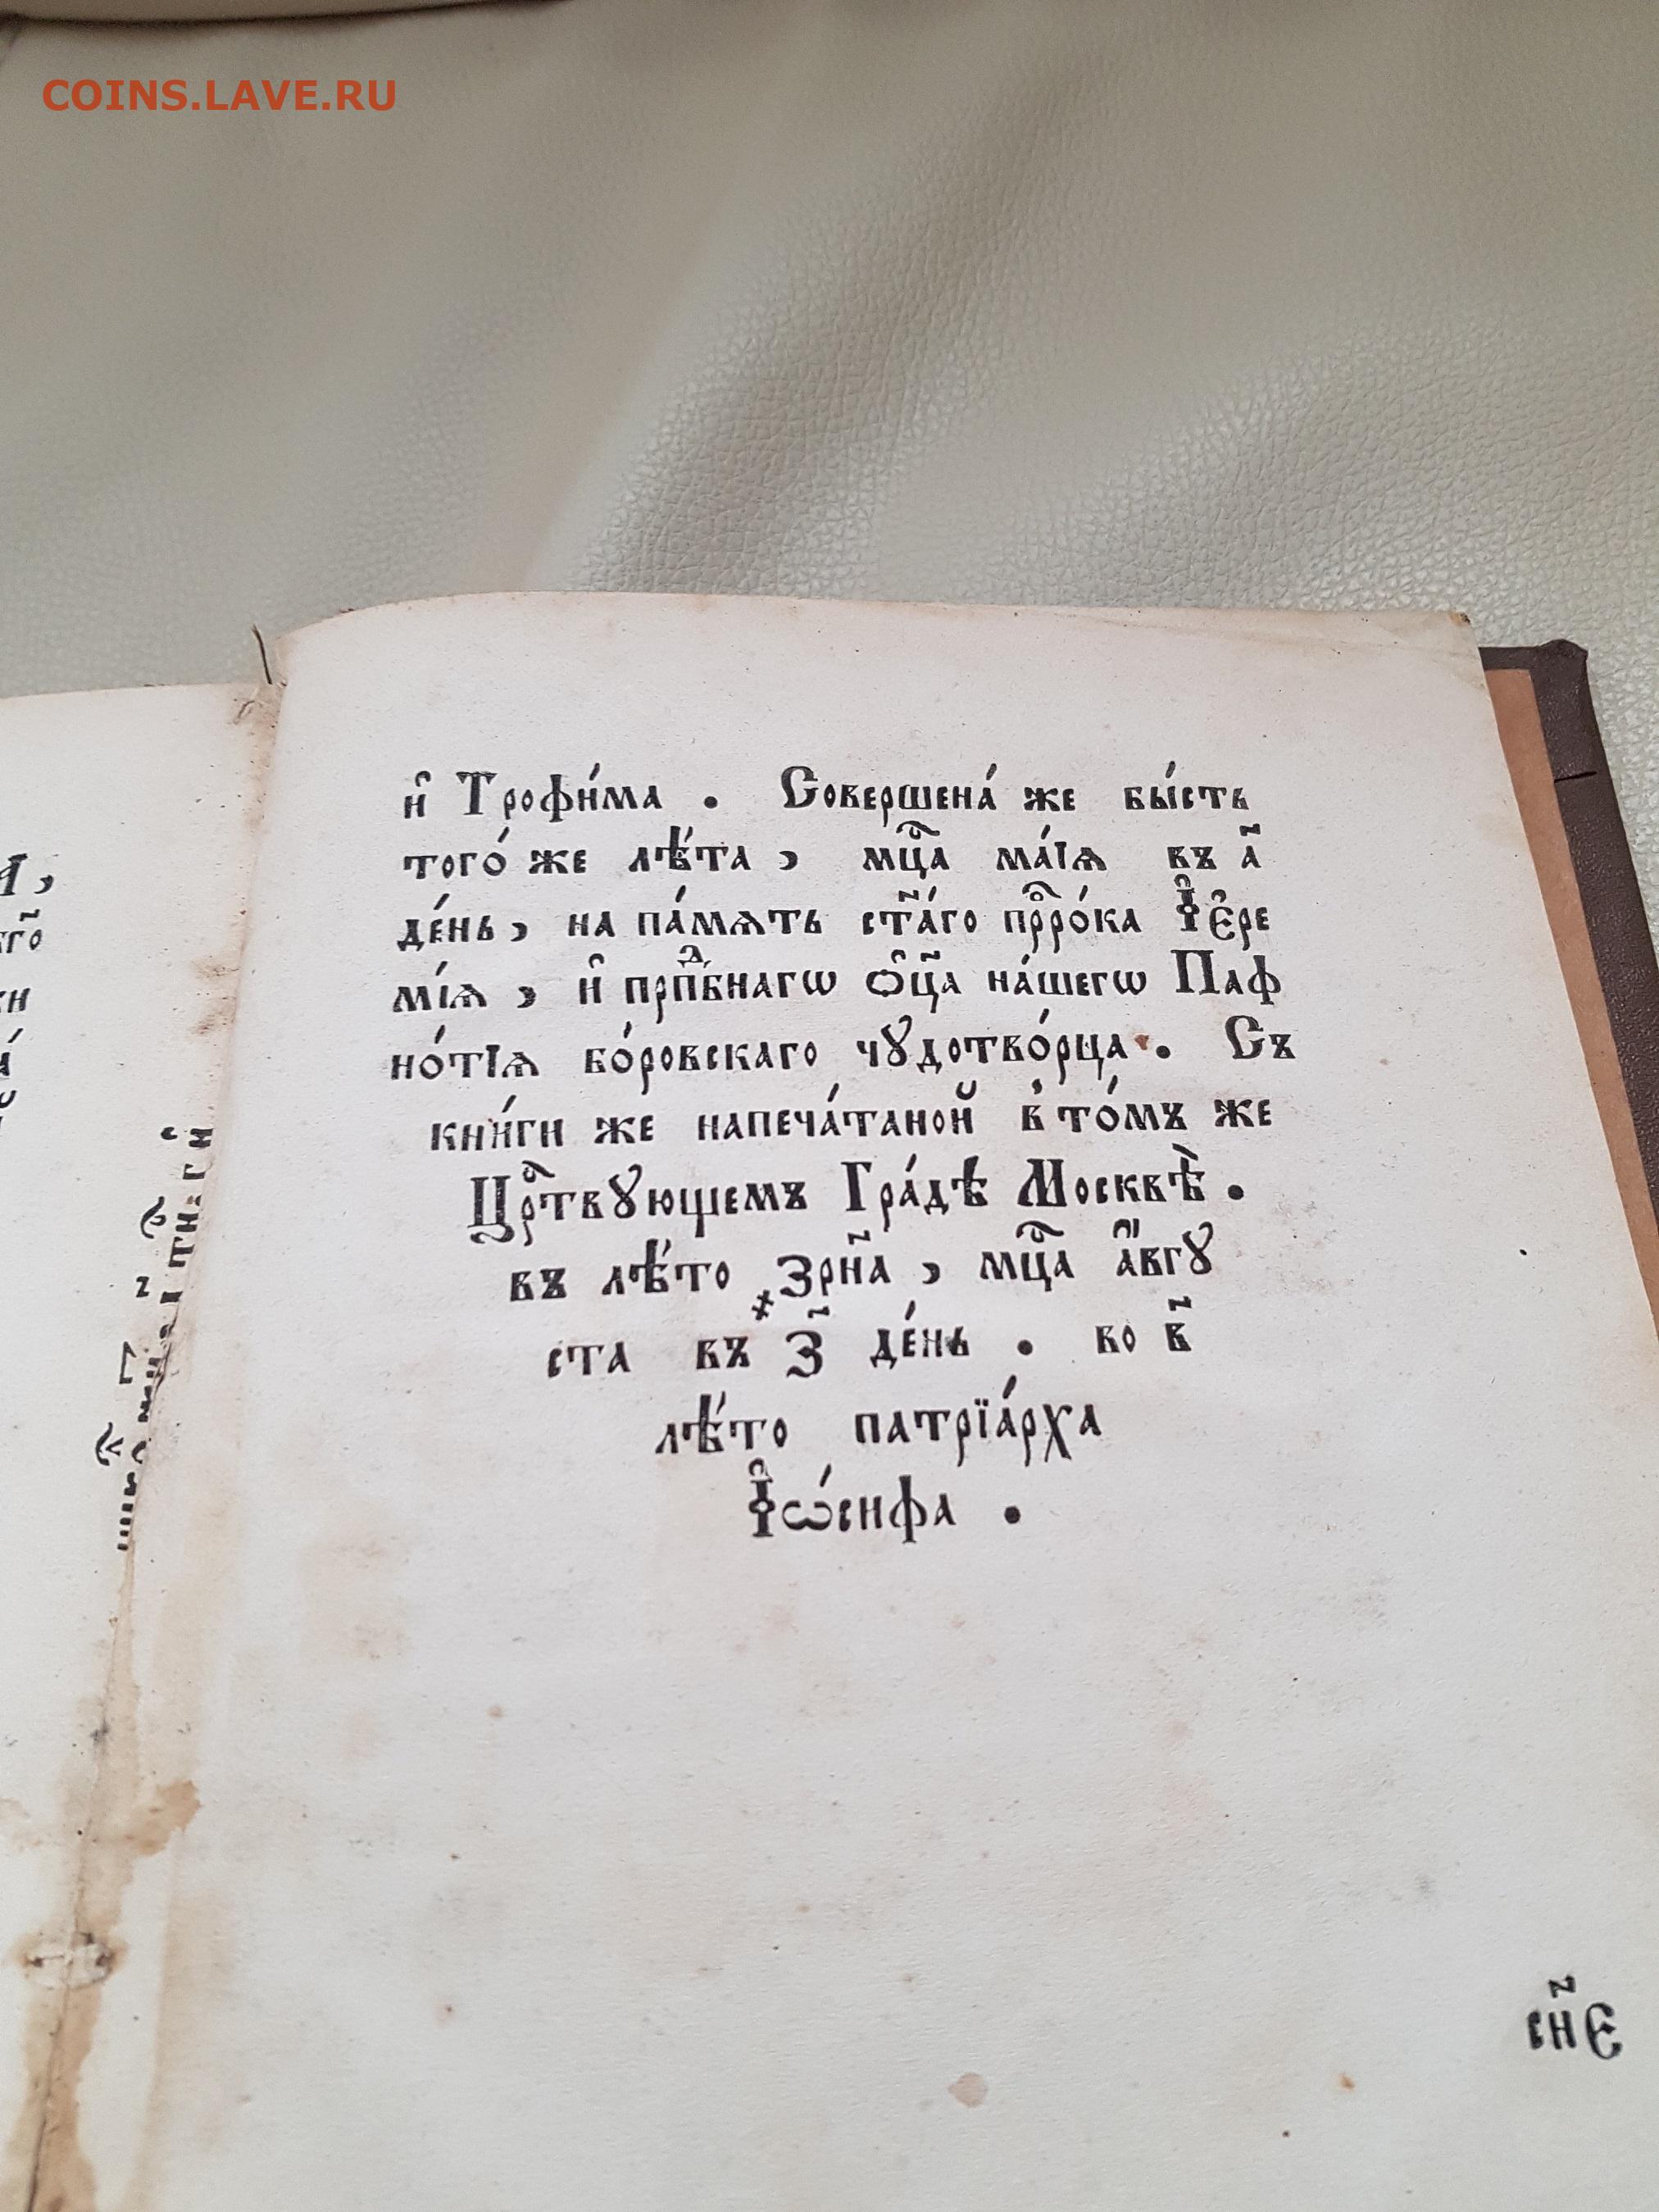 COINS.LAVE.RU
и҆ Трофи́ма . Совершена́ же бы́сть
того́ же лѣ́та , мц҇а ма́їѧ въ а҃
де́нь , на па́мѧть ст҃а́го прⷪ҇ро́ка І҆е҆ре
мі́ѧ , и҆ прпⷣбнагѡ ѻ҆ц҃а на́шегѡ Паф
но́тїѧ бо́ровскаго чꙋдотво́рца . Съ
кни́ги же напеча́таной в̾ то́мъ же
Црⷭ҇твꙋющемъ Гра́дѣ Москвѣ̀ .
въ лѣ́то ҂зрн҃а , мц҇а а҆́вгꙋ
ста въ з҃ де́нь . во в҃
лѣ́то патрїа́рха
І҆ѡ́сифа .